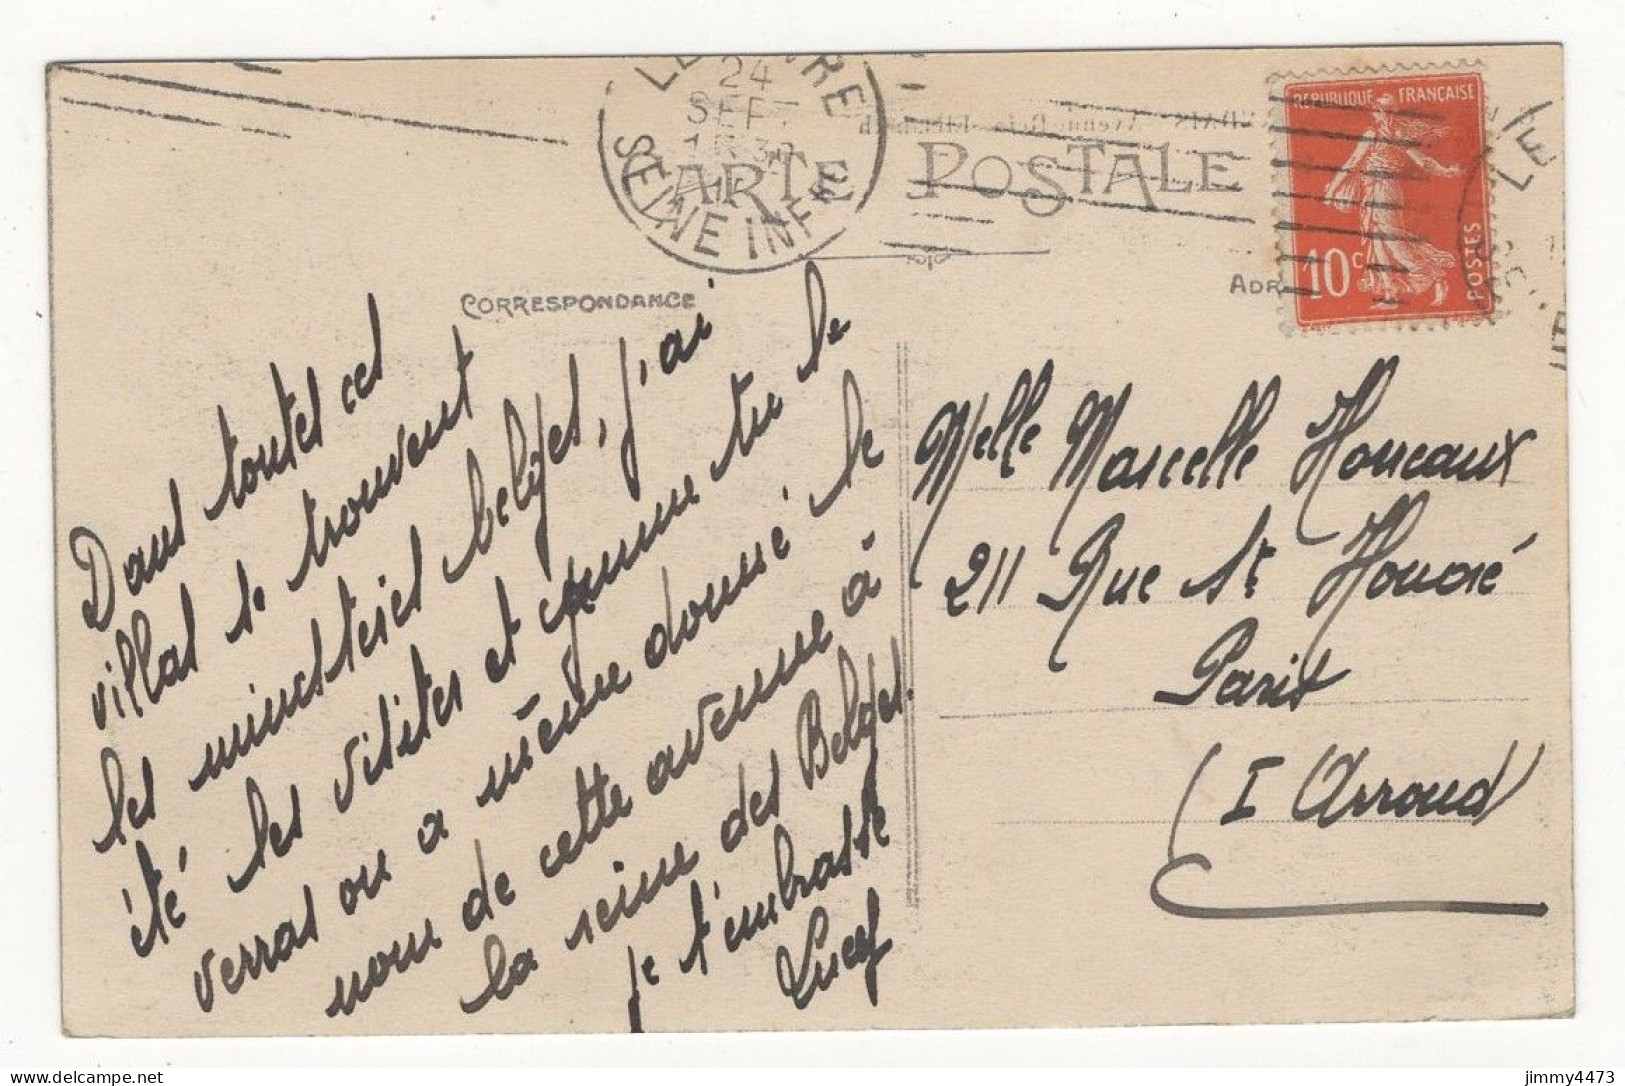 LE
24
SEPT
SEINE INFRE
CARTE POSTALE
REPUBLIQUE FRANÇAISE
10c
POSTES
LE
CORRESPONDANCE
ADR
Dans toutes ces
villas se trouvent
les ministères belges, j'ai
été les visiter et comme tu le
verras on a même donné le
nom de cette avenue à
la reine des Belges.
je t'embrasse
Melle Marcelle Honeaux
211 Rue St Honoré
Paris
(I Arrond)
jimmy4473
delcampe.net